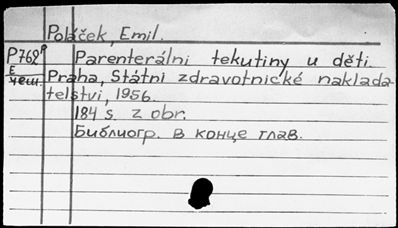 Poláček, Emil.
P762ᴿ Parenterálni tekutiny u děti.
E Praha, Státni zdravotnické naklada-
чеш. telstvi, 1956.
184 s. z obr.
Библиогр. в конце глав.